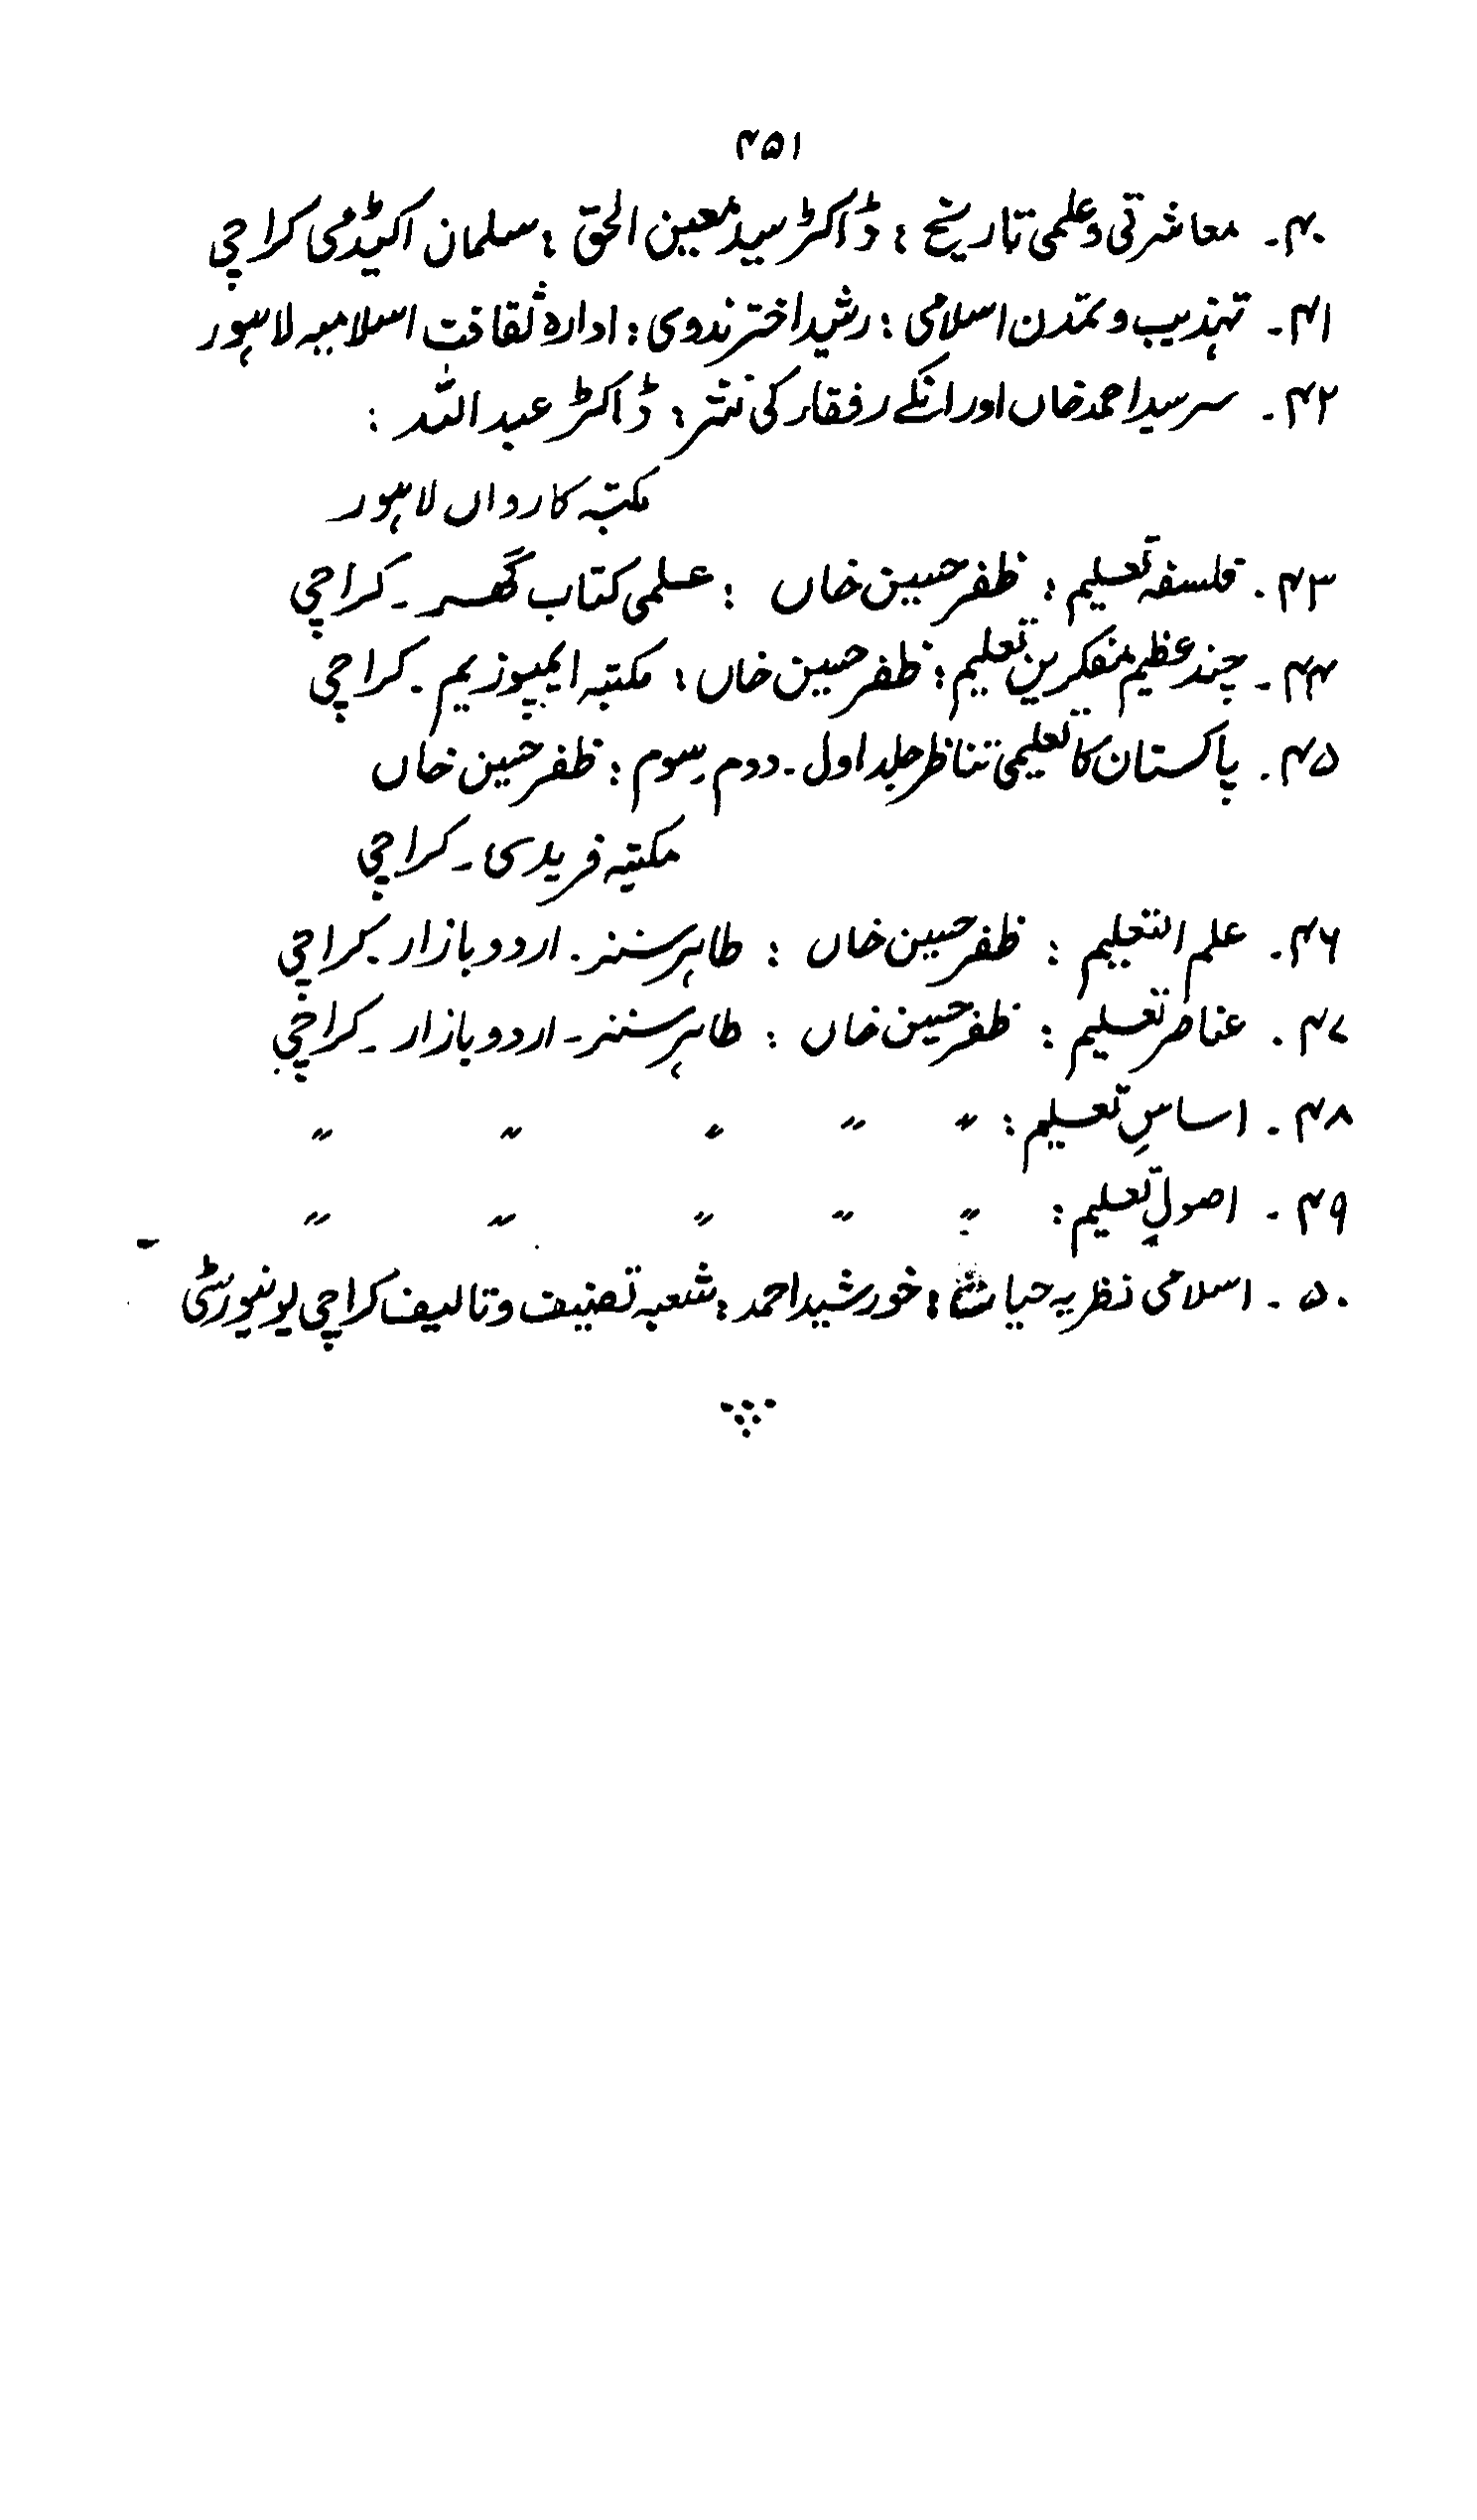 ۴۵۱
۴۰۔ معاشرتی و علمی تاریخ : ڈاکٹر سید معین الحق : سلمان اکیڈمی کراچی
۴۱۔ تہذیب و تمدن اسلامی : رشید اختر ندوی : ادارہ ثقافتِ اسلامیہ لاہور
۴۲۔ سر سید احمد خاں اور انکے رفقاء کی نثر : ڈاکٹر عبد اللہ :
مکتبہ کارواں لاہور
۴۳۔ فلسفہ تعلیم : ظفر حسین خاں : علمی کتاب گھر ۔ کراچی
۴۴۔ چند عظیم مفکرین تعلیم : ظفر حسین خاں : مکتبہ ایمپوزیم ۔ کراچی
۴۵۔ پاکستان کا تعلیمی تناظر جلد اول ۔ دوم سوم : ظفر حسین خاں
مکتبہ فریدی ۔ کراچی
۴۶۔ علم التعلیم : ظفر حسین خاں : طاہر سنز ۔ اردو بازار ۔ کراچی
۴۷۔ عناصر تعلیم : ظفر حسین خاں : طاہر سنز ۔ اردو بازار ۔ کراچی
۴۸۔ اساسِ تعلیم : 〃 〃 〃 〃 〃
۴۹۔ اصولِ تعلیم : 〃 〃 〃 〃 〃
۵۰۔ اسلامی نظریہ حیات : خورشید احمد : شعبہ تصنیف و تالیف کراچی یونیورسٹی